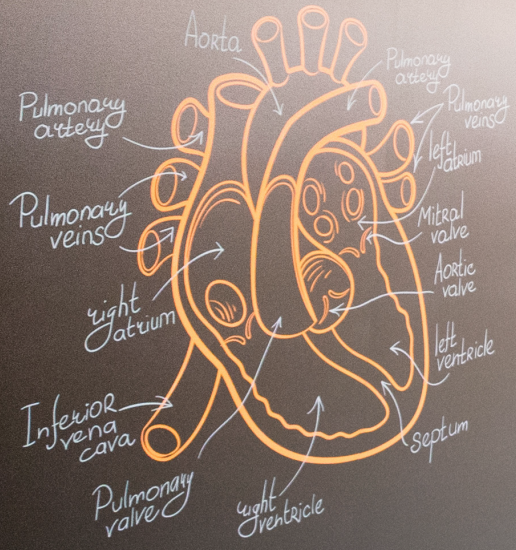 Aorta
Pulmonary
artery
Pulmonary
artery
Pulmonary
veins
left
atrium
Pulmonary
veins
Mitral
valve
Aortic
valve
right
atrium
left
ventricle
Inferior
vena
cava
septum
Pulmonary
valve
right
ventricle